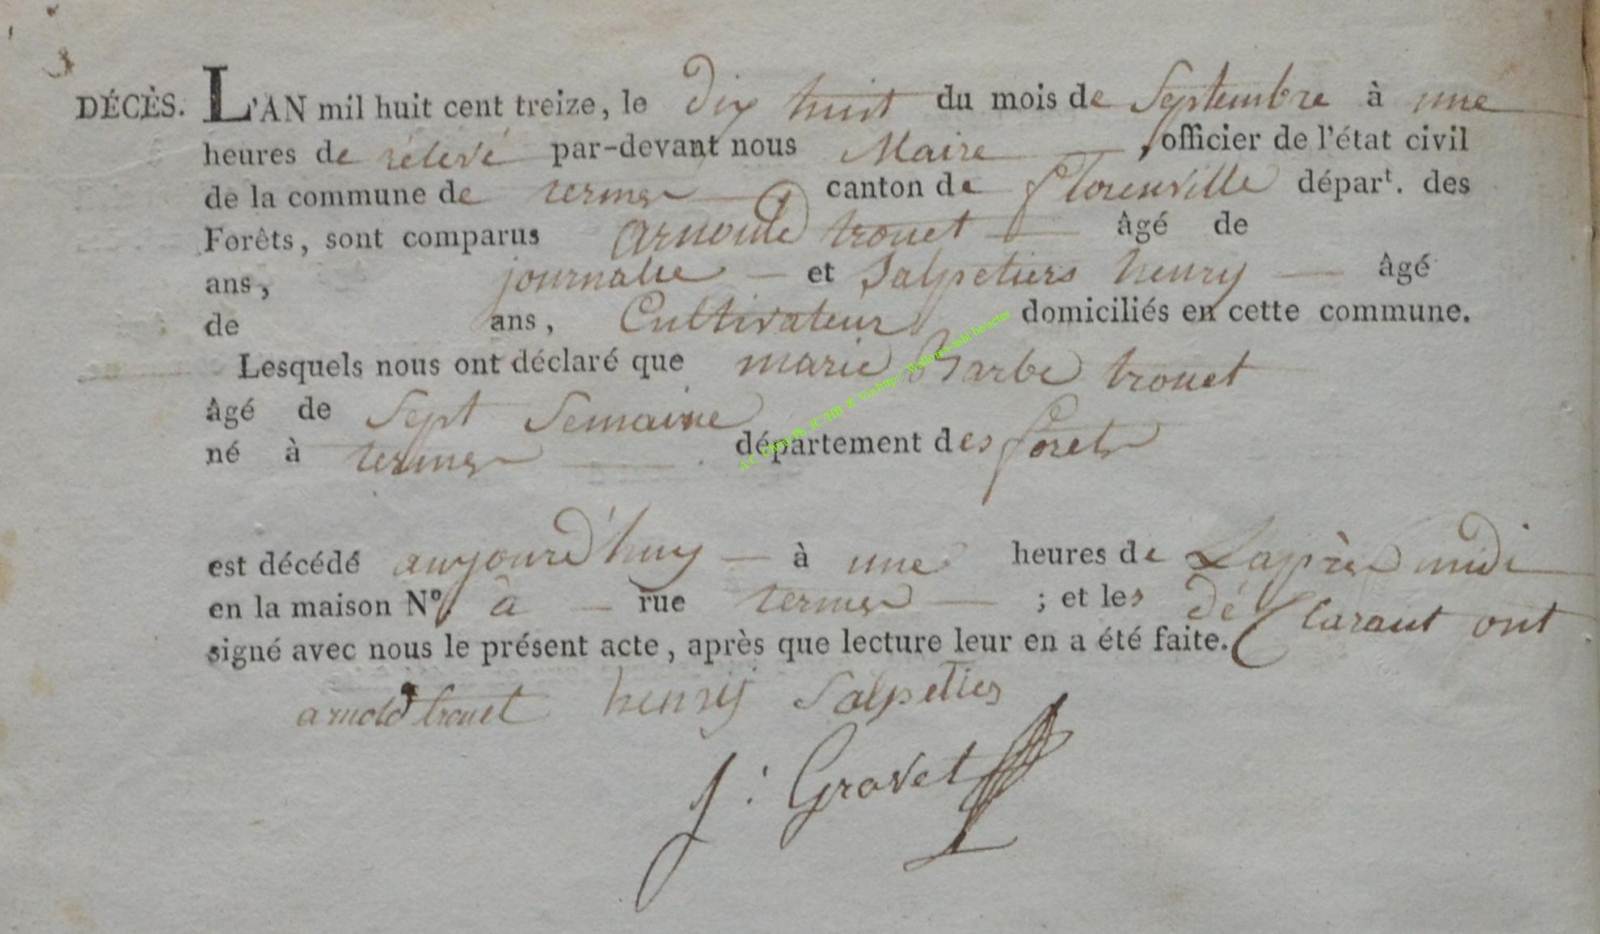 3
DÉCÈS. L'AN mil huit cent treize, le dix huit du mois de Septembre à une
heures de rélevé par-devant nous Maire , officier de l'état civil
de la commune de termes canton de florenville départ. des
Forêts, sont comparus Arnould trouet âgé de
ans, journalie et Salpetiers henry âgé
de ans, Cultivateur domiciliés en cette commune.
Lesquels nous ont déclaré que marie Barbe trouet
âgé de Sept Semaine
né à termes département des foret
est décédé aujourd'huy à une heures de Laprès midi
en la maison Nº. à rue termes ; et les déClarant ont
signé avec nous le présent acte, après que lecture leur en a été faite.
arnold trouet henrij Salpetties
j : Gravet